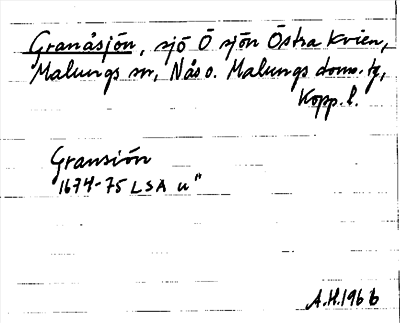 Granåsjön, sjö Ö sjön Östra Kvien,
Malungs sn, Nås o. Malungs doms. tg,
Kopp. l.
Gransiön
1674-75 LSA u"
A.H. 1966